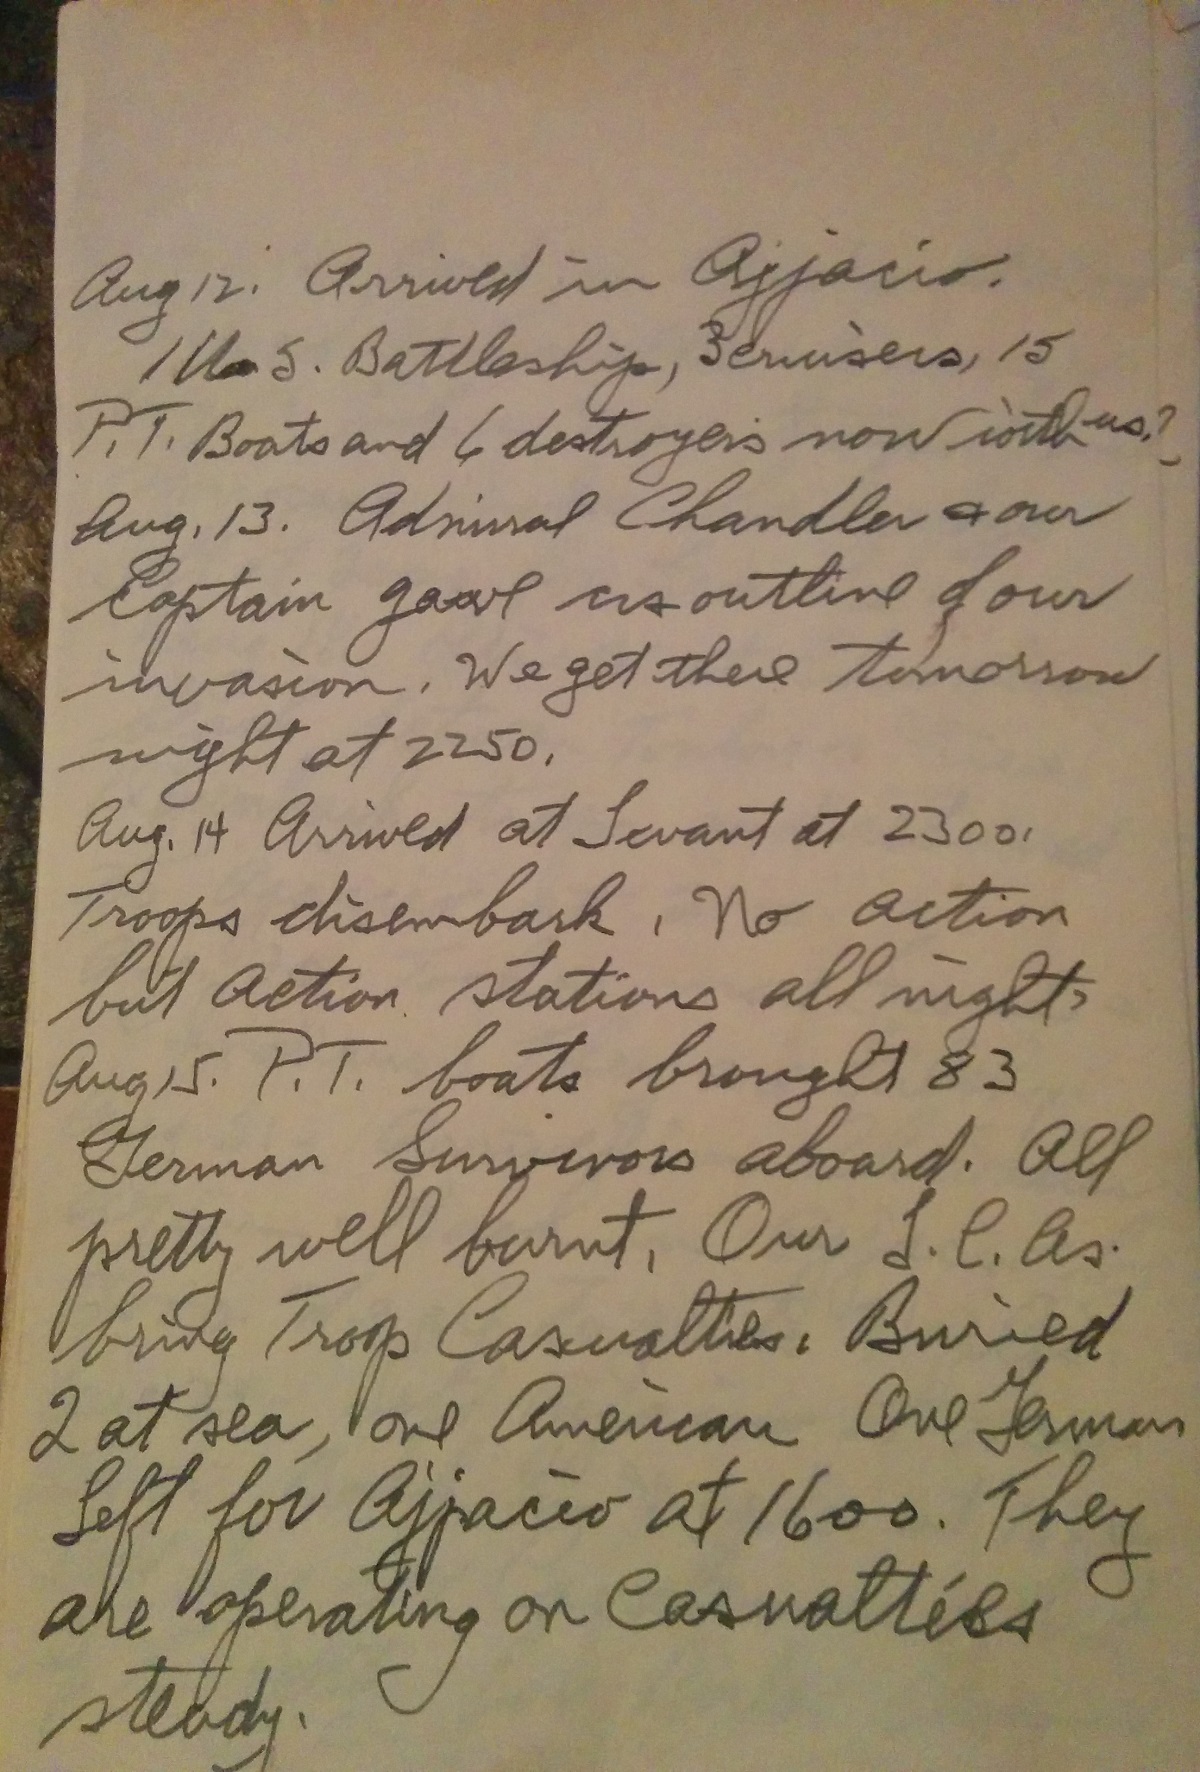 Aug 12. Arrived in Ajjacio.
1 U.S. Battleship, 3 cruisers, 15
P.T. Boats and 6 destroyers now with us.
Aug. 13. Admiral Chandler & our
Captain gave us outline of our
invasion. We get there tomorrow
night at 2250.
Aug. 14 Arrived at Levant at 2300.
Troops disembark. No action
but action stations all night.
Aug 15. P.T. boats brought 83
German Survivors aboard. All
pretty well burnt. Our L.C.As.
bring Troop Casualties. Buried
2 at sea, one American One German
Left for Ajjacio at 1600. They
are operating on Casualties
steady.